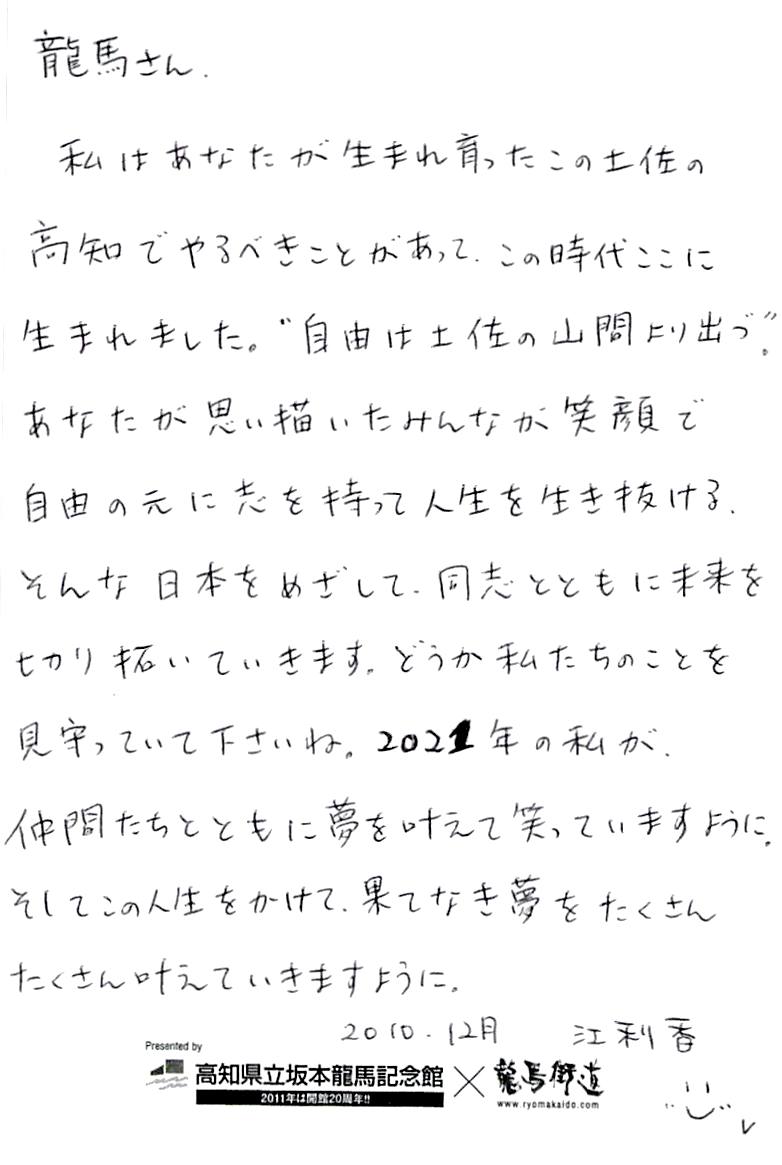 龍馬さん、
私はあなたが生まれ育ったこの土佐の
高知でやるべきことがあって、この時代ここに
生まれました。“自由は土佐の山間より出づ”。
あなたが思い描いたみんなが笑顔で
自由の元に志を持って人生を生き抜ける、
そんな日本をめざして、同志とともに未来を
切り拓いていきます。どうか私たちのことを
見守っていて下さいね。2021年の私が、
仲間たちとともに夢を叶えて笑っていますように。
そしてこの人生をかけて、果てなき夢をたくさん
たくさん叶えていきますように。
2010.12月 江利香
Presented by
高知県立坂本龍馬記念館×龍馬街道
2011年は開館20周年!! www.ryomakaido.com